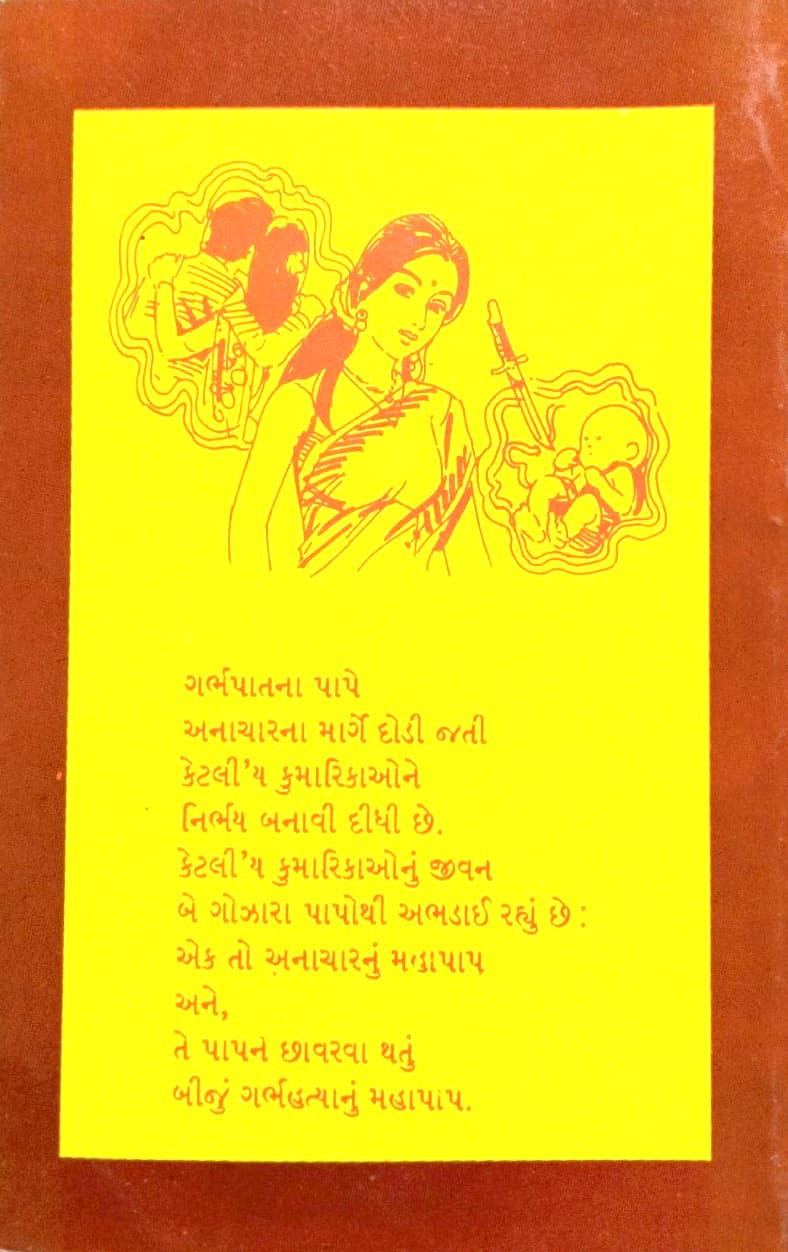 ગર્ભપાતના પાપે
અનાચારના માર્ગે દોડી જતી
કેટલી'ય કુમારિકાઓને
નિર્ભય બનાવી દીધી છે.
કેટલી'ય કુમારિકાઓનું જીવન
બે ગોઝારા પાપોથી અભડાઈ રહ્યું છે :
એક તો અનાચારનું મહાપાપ
અને,
તે પાપને છાવરવા થતું
બીજું ગર્ભહત્યાનું મહાપાપ.